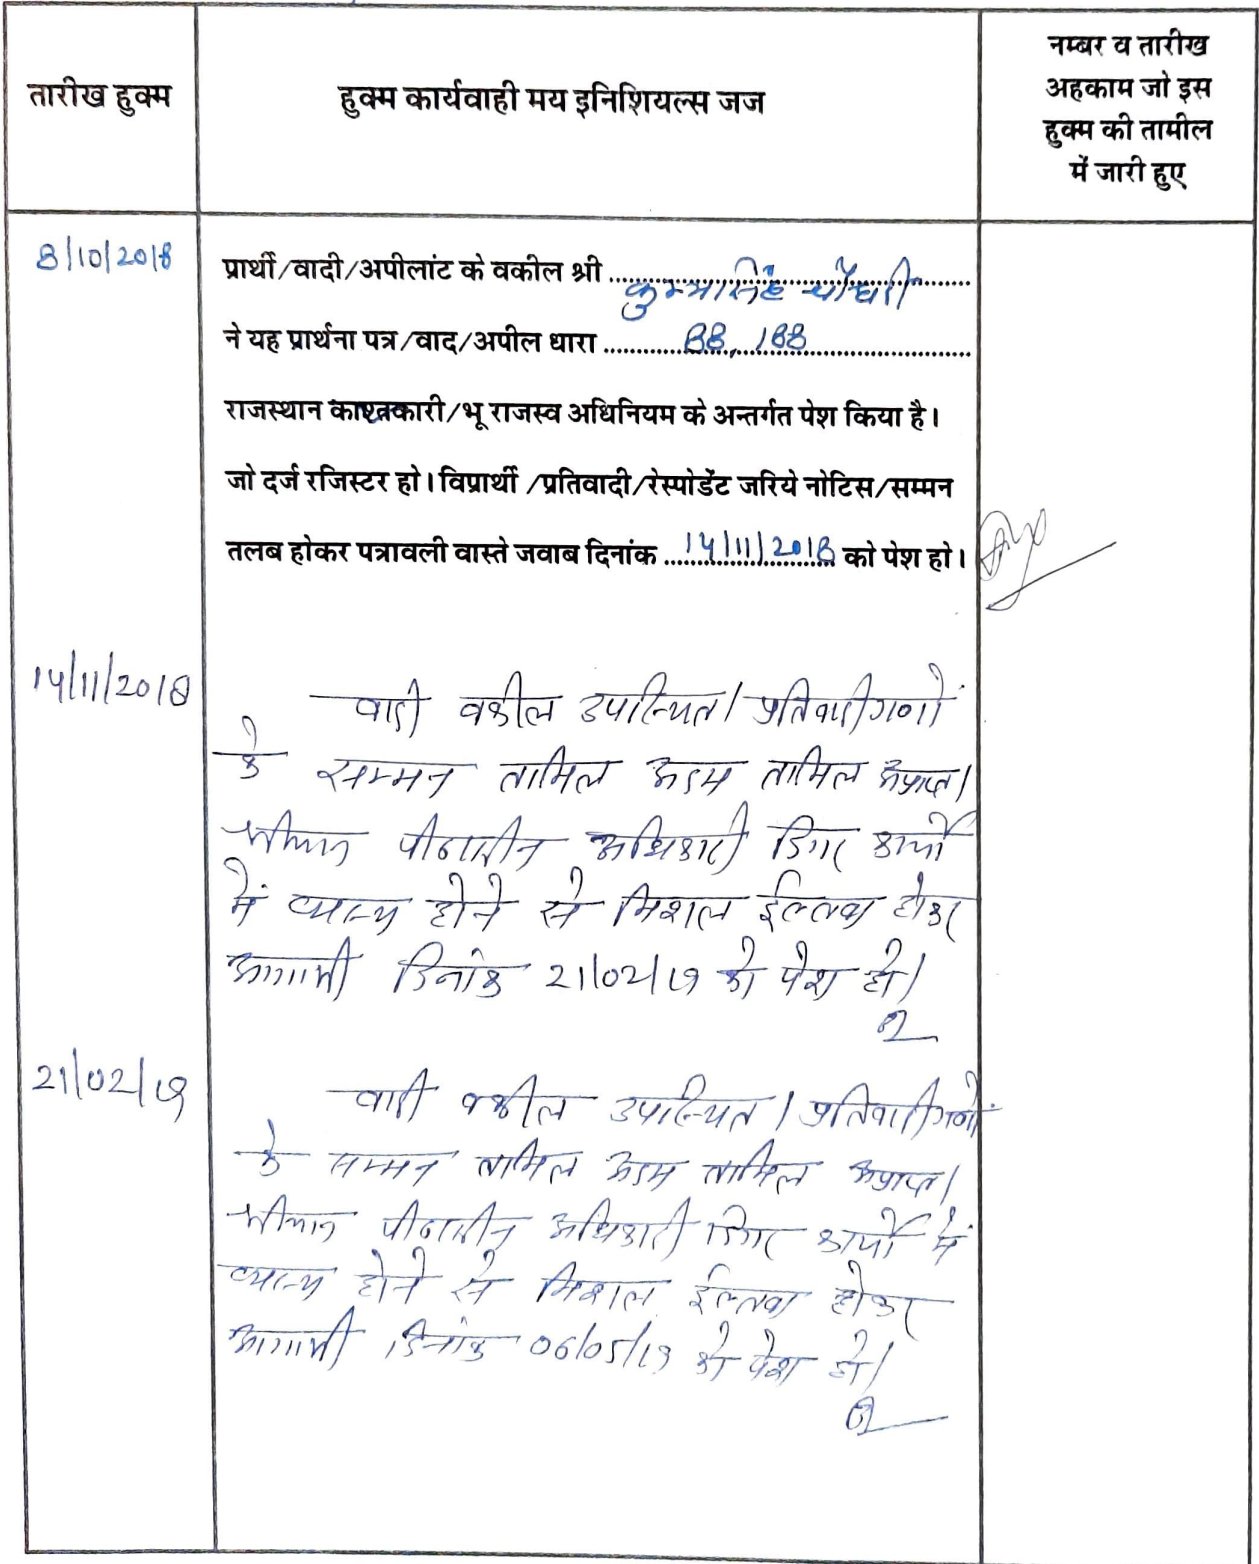 तारीख हुक्म
हुक्म कार्यवाही मय इनिशियल्स जज
नम्बर व तारीख
अहकाम जो इस
हुक्म की तामील
में जारी हुए
8/10/2018
प्रार्थी/वादी/अपीलांट के वकील श्री कुम्भासिंह चौधरी
ने यह प्रार्थना पत्र/वाद/अपील धारा 88, 188
राजस्थान काश्तकारी/भू राजस्व अधिनियम के अन्तर्गत पेश किया है।
जो दर्ज रजिस्टर हो। विप्रार्थी /प्रतिवादी/रेस्पोडेंट जरिये नोटिस/सम्मन
तलब होकर पत्रावली वास्ते जवाब दिनांक 14/11/2018 को पेश हो।
14/11/2018
वादी वकील उपस्थित। प्रतिवादीगणों
के सम्मन तामिल अदम तामिल अप्राप्त।
श्रीमान पीठासीन अधिकारी दिगर कार्यो
में व्यस्त होने से मिशल ईल्तवा होकर
आगामी दिनांक 21/02/19 को पेश हो।
21/02/19
वादी वकील उपस्थित। प्रतिवादीगणों
के सम्मन तामिल अदम तामिल अप्राप्त।
श्रीमान पीठासीन अधिकारी दिगर कार्यो में
व्यस्त होने से मिशल ईल्तवा होकर
आगामी दिनांक 06/05/19 को पेश हो।